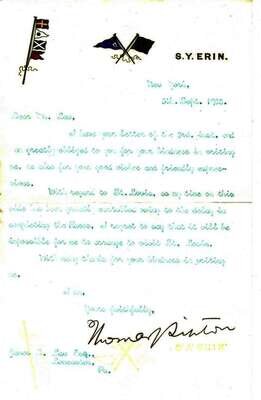 S.Y. ERIN.
New York,
5th. Sept. 1920.
Dear Mr. 
I have your letter of the 3rd. inst. and
am greatly obliged to you for your kindness in writing
me, as also for your good wishes and friendly expres-
sions.
With regard to St. Louis, as my time on this
side has been greatly curtailed owing to the delay in
completing the Races, I regret to say that it will be
impossible for me to arrange to visit St. Louis.
With many thanks for your kindness in writing
me,
I am,
Yours faithfully,
Thomas Lipton
James Esq.,
Lancaster,
Pa.